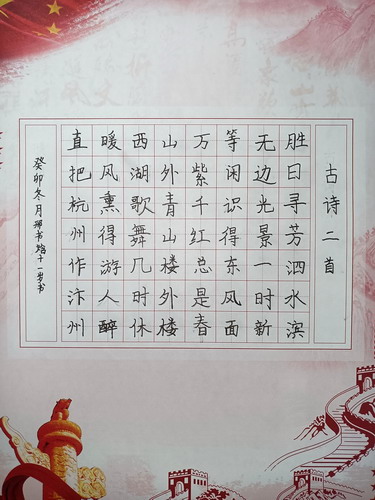 古诗二首
胜日寻芳泗水滨
无边光景一时新
等闲识得东风面
万紫千红总是春
山外青山楼外楼
西湖歌舞几时休
暖风熏得游人醉
直把杭州作汴州
癸卯冬月 书 十一岁书